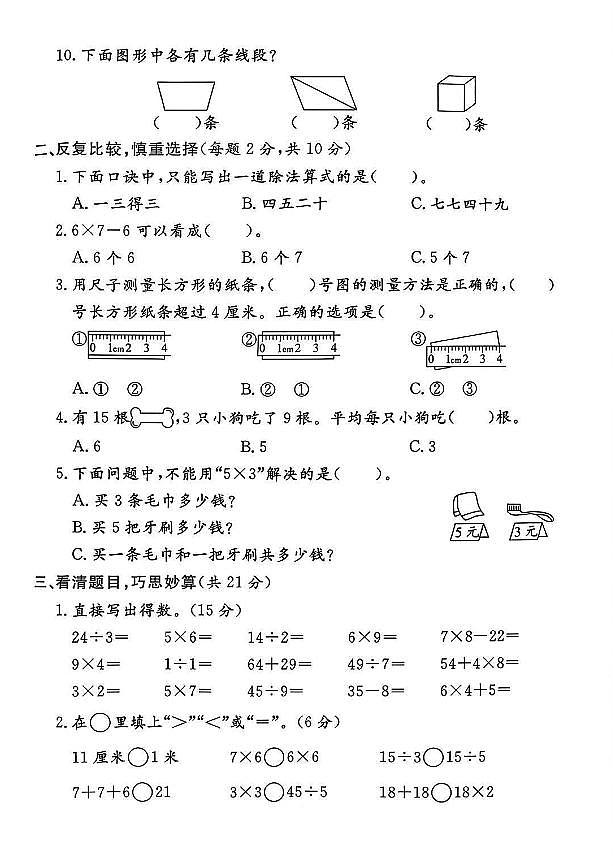 10. 下面图形中各有几条线段?
(  )条 (  )条 (  )条
二、反复比较,慎重选择(每题 2 分,共 10 分)
1. 下面口诀中,只能写出一道除法算式的是(  )。
A. 一三得三 B. 四五二十 C. 七七四十九
2. 6×7-6 可以看成(  )。
A. 6 个 6 B. 6 个 7 C. 5 个 7
3. 用尺子测量长方形的纸条,(  )号图的测量方法是正确的,(  )
号长方形纸条超过 4 厘米。正确的选项是(  )。
① 0 1cm2 3 4 ② 0 1cm2 3 4 ③ 0 1cm2 3 4
A. ① ② B. ② ① C. ② ③
4. 有 15 根,3 只小狗吃了 9 根。平均每只小狗吃(  )根。
A. 6 B. 5 C. 3
5. 下面问题中,不能用“5×3”解决的是(  )。
A. 买 3 条毛巾多少钱?
B. 买 5 把牙刷多少钱?
C. 买一条毛巾和一把牙刷共多少钱?
5 元 3 元
三、看清题目,巧思妙算(共 21 分)
1. 直接写出得数。(15 分)
24÷3= 5×6= 14÷2= 6×9= 7×8-22=
9×4= 1÷1= 64+29= 49÷7= 54+4×8=
3×2= 5×7= 45÷9= 35-8= 6×4+5=
2. 在○里填上“>”“<”或“=”。(6 分)
11 厘米○1 米 7×6○6×6 15÷3○15÷5
7+7+6○21 3×3○45÷5 18+18○18×2